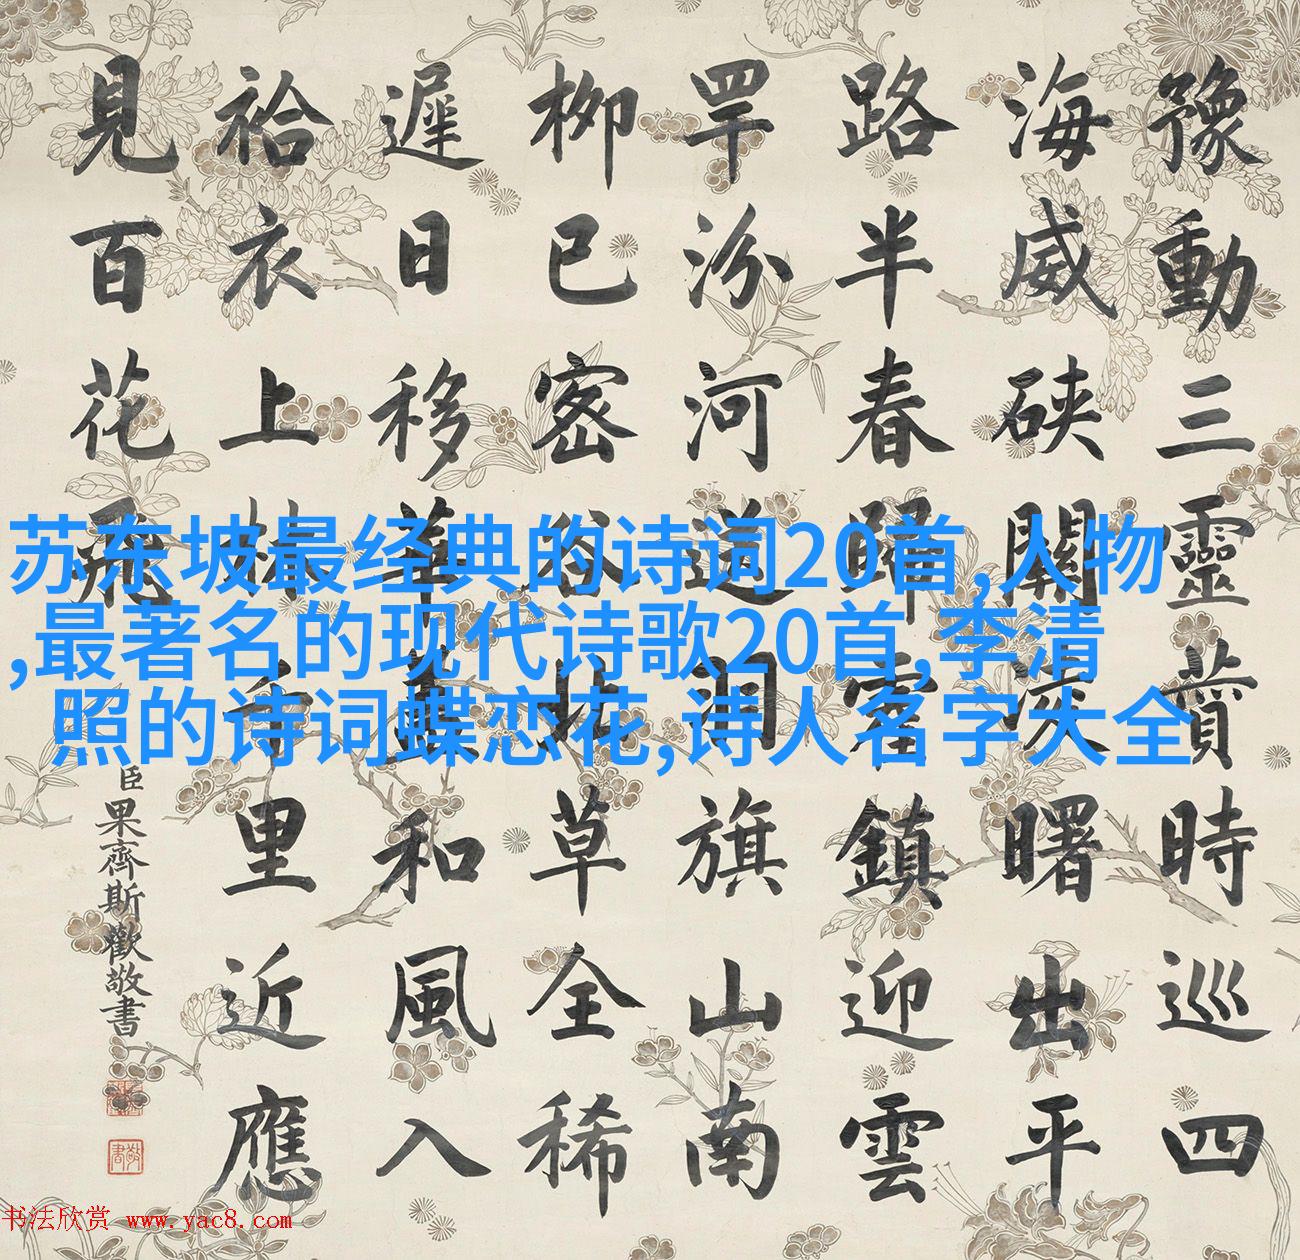 豫動三靈賁時巡四
海威硤關凌曙出平
路半春歸霍鎮迎雲
罕汾河送羽旗山南
柳已密谷北草全稀
遲日移華蓋和風入
袷衣上林千里近應
見百花飛
臣果齊斯歡敬書
苏东坡最经典的诗词20首,人物
,最著名的现代诗歌20首,李清
照的诗词蝶恋花,诗人名字大全
书法欣赏 www.yac8.com